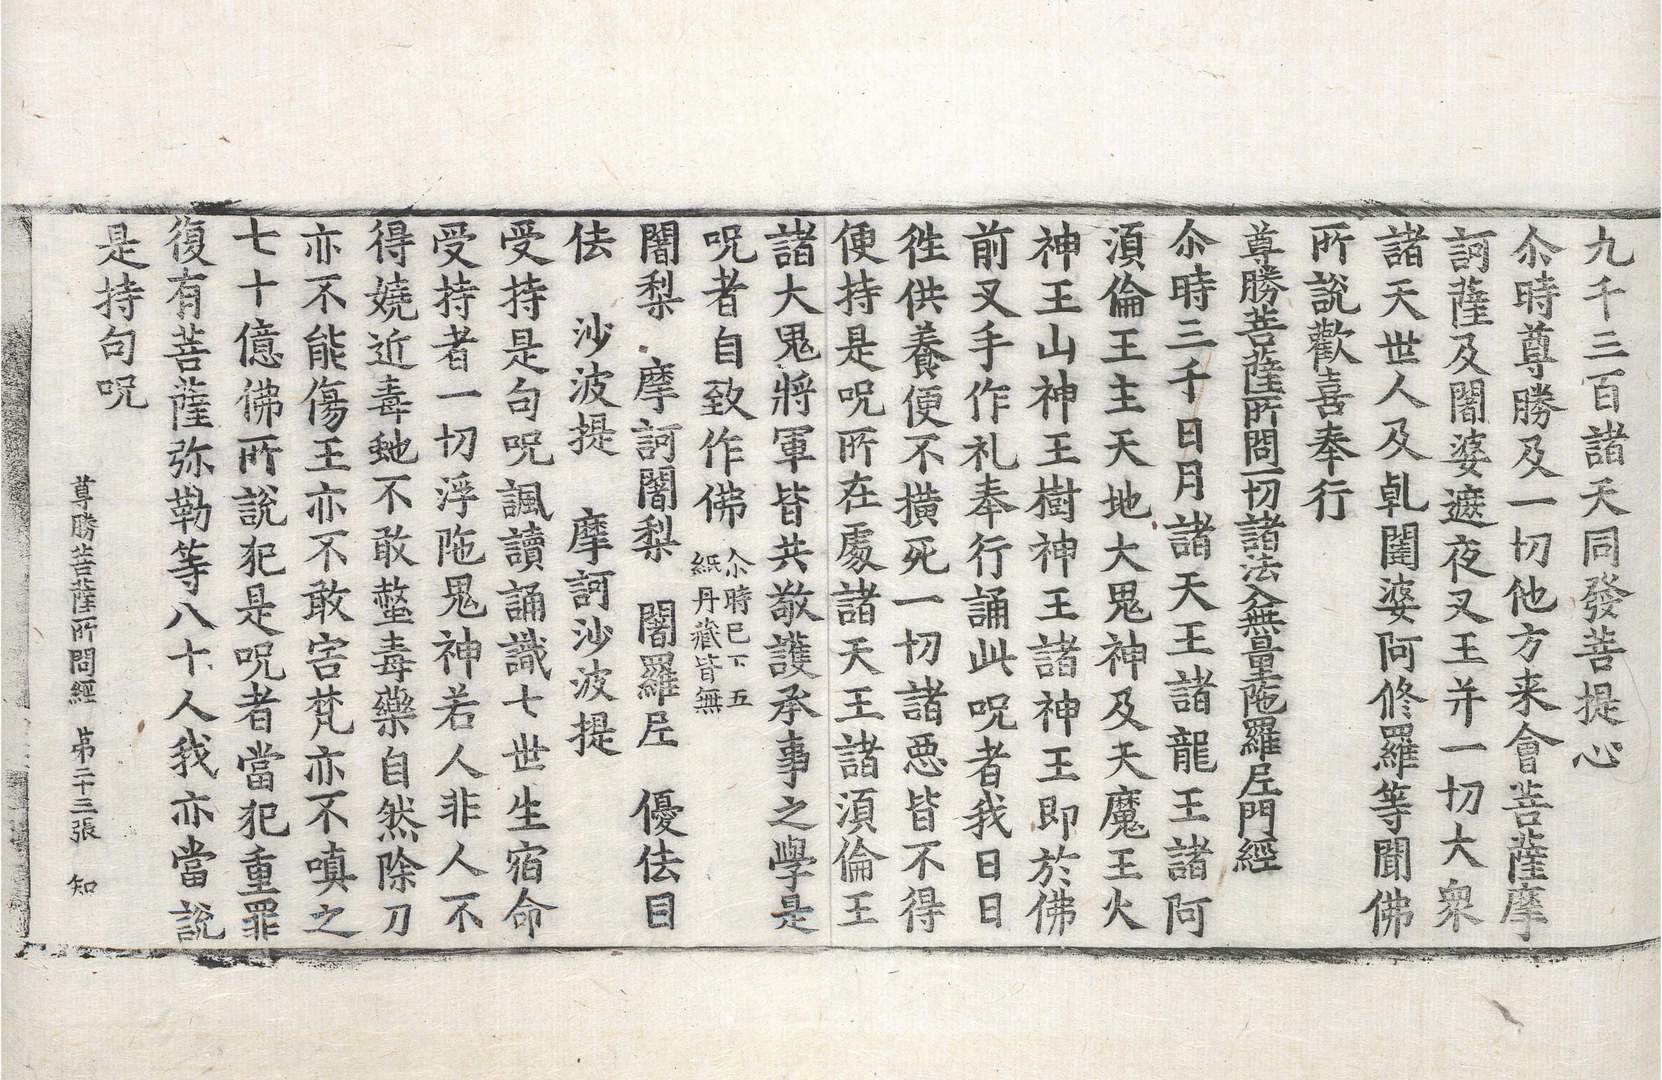 九千三百諸天同發菩提心
尒時尊勝及一切他方来會菩薩摩
訶薩及闍婆遮夜叉王并一切大衆
諸天世人及乹闥婆阿修羅等聞佛
所說歡喜奉行
尊勝菩薩所問一切諸法入無量陁羅尼門經
尒時三千日月諸天王諸龍王諸阿
湏倫王主天地大鬼神及天魔王火
神王山神王樹神王諸神王即於佛
前叉手作礼奉行誦此呪者我日日
徃供養便不横死一切諸惡皆不得
便持是呪所在處諸天王諸湏倫王
諸大鬼將軍皆共敬護承事之學是
呪者自致作佛 尒時已下五
紙丹藏皆無
闍梨 摩訶闍梨 闍羅尼 優佉目
佉 沙波提 摩訶沙波提
受持是句呪諷讀誦識七世生宿命
受持者一切浮陁鬼神若人非人不
得嬈近毒虵不敢螫毒藥自然除刀
亦不能傷王亦不敢害梵亦不嗔之
七十億佛所說犯是呪者當犯重罪
復有菩薩弥勒等八十人我亦當說
是持句呪
尊勝菩薩所問經 第二十三張 知